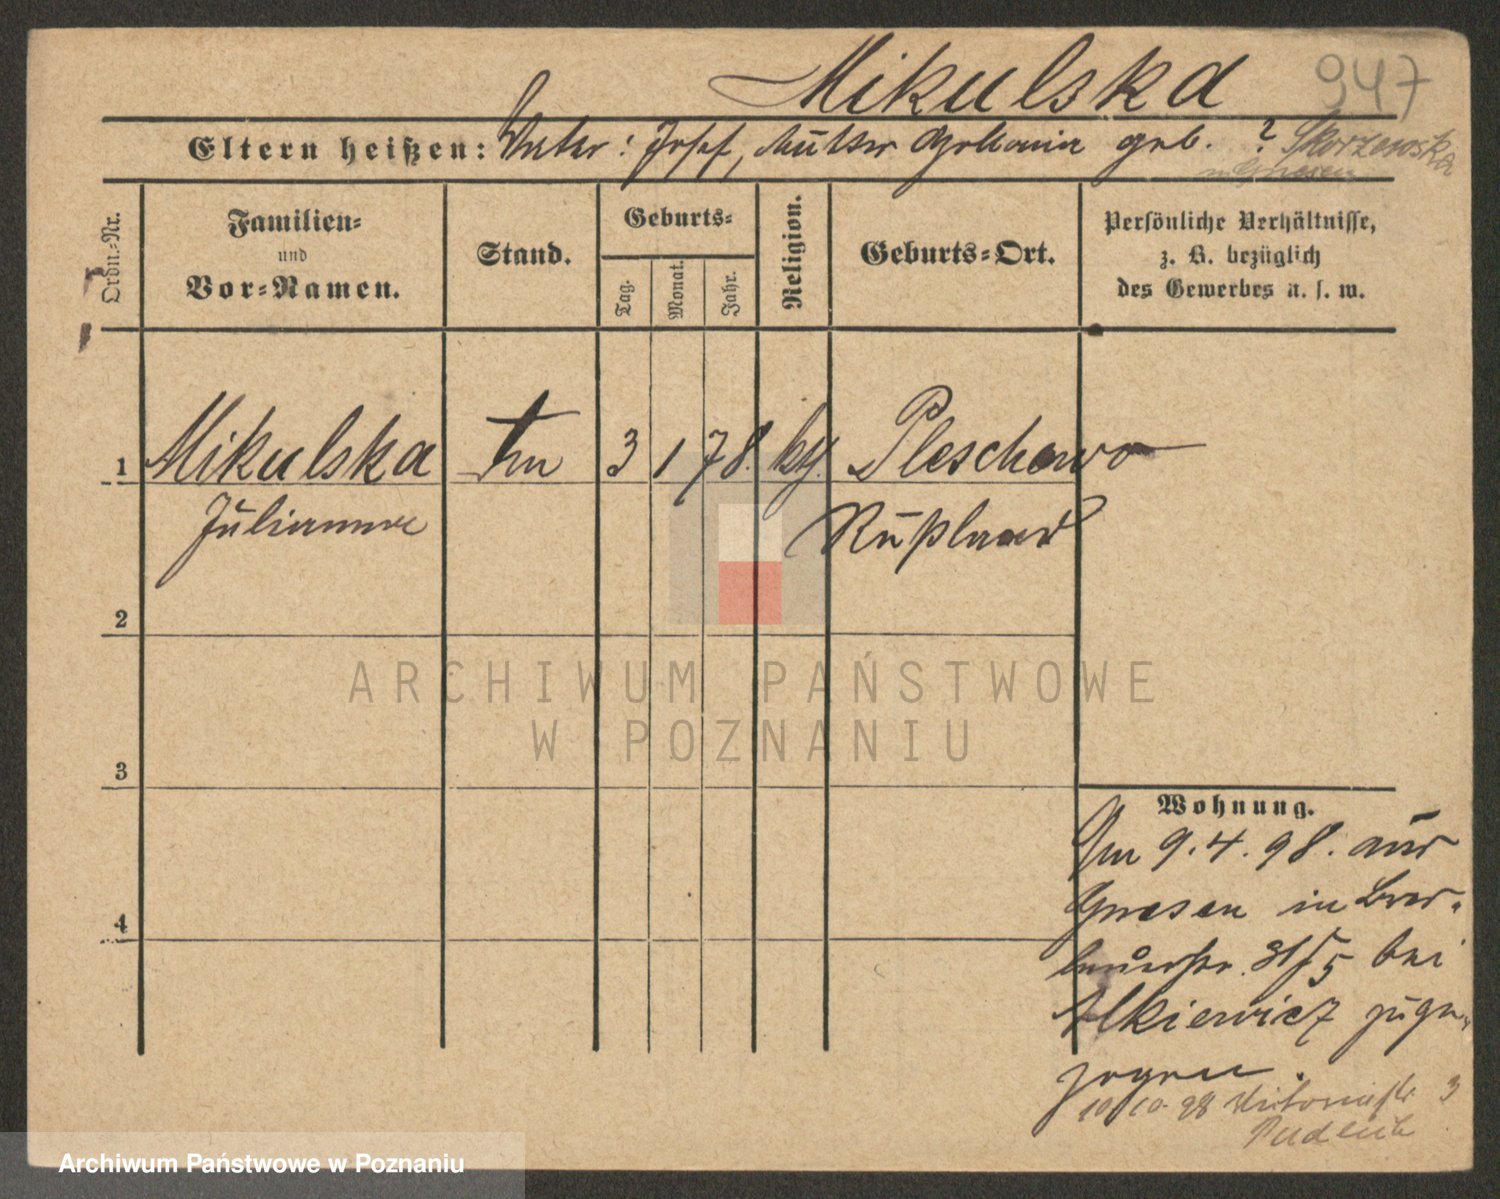 Mikulska 947
Eltern heißen: Vater: Josef, Mutter Apollonia geb. ? Skorzewska
in Gnesen
Ordn.-Nr.
Familien-
und
Vor-Namen.
Stand.
Geburts-
Tag.
Monat.
Jahr.
Religion.
Geburts-Ort.
Persönliche Verhältnisse,
z. B. bezüglich
des Gewerbes u. s. w.
1 Mikulska 3 1 78. Pleschowo
Julianna Rußland
2
3
4
Wohnung.
Am 9.4.98. aus
Gnesen in
31/5 bei
Alkiewicz zuge-
zogen.
10/10 98 3
ARCHIWUM PAŃSTWOWE
W POZNANIU
Archiwum Państwowe w Poznaniu